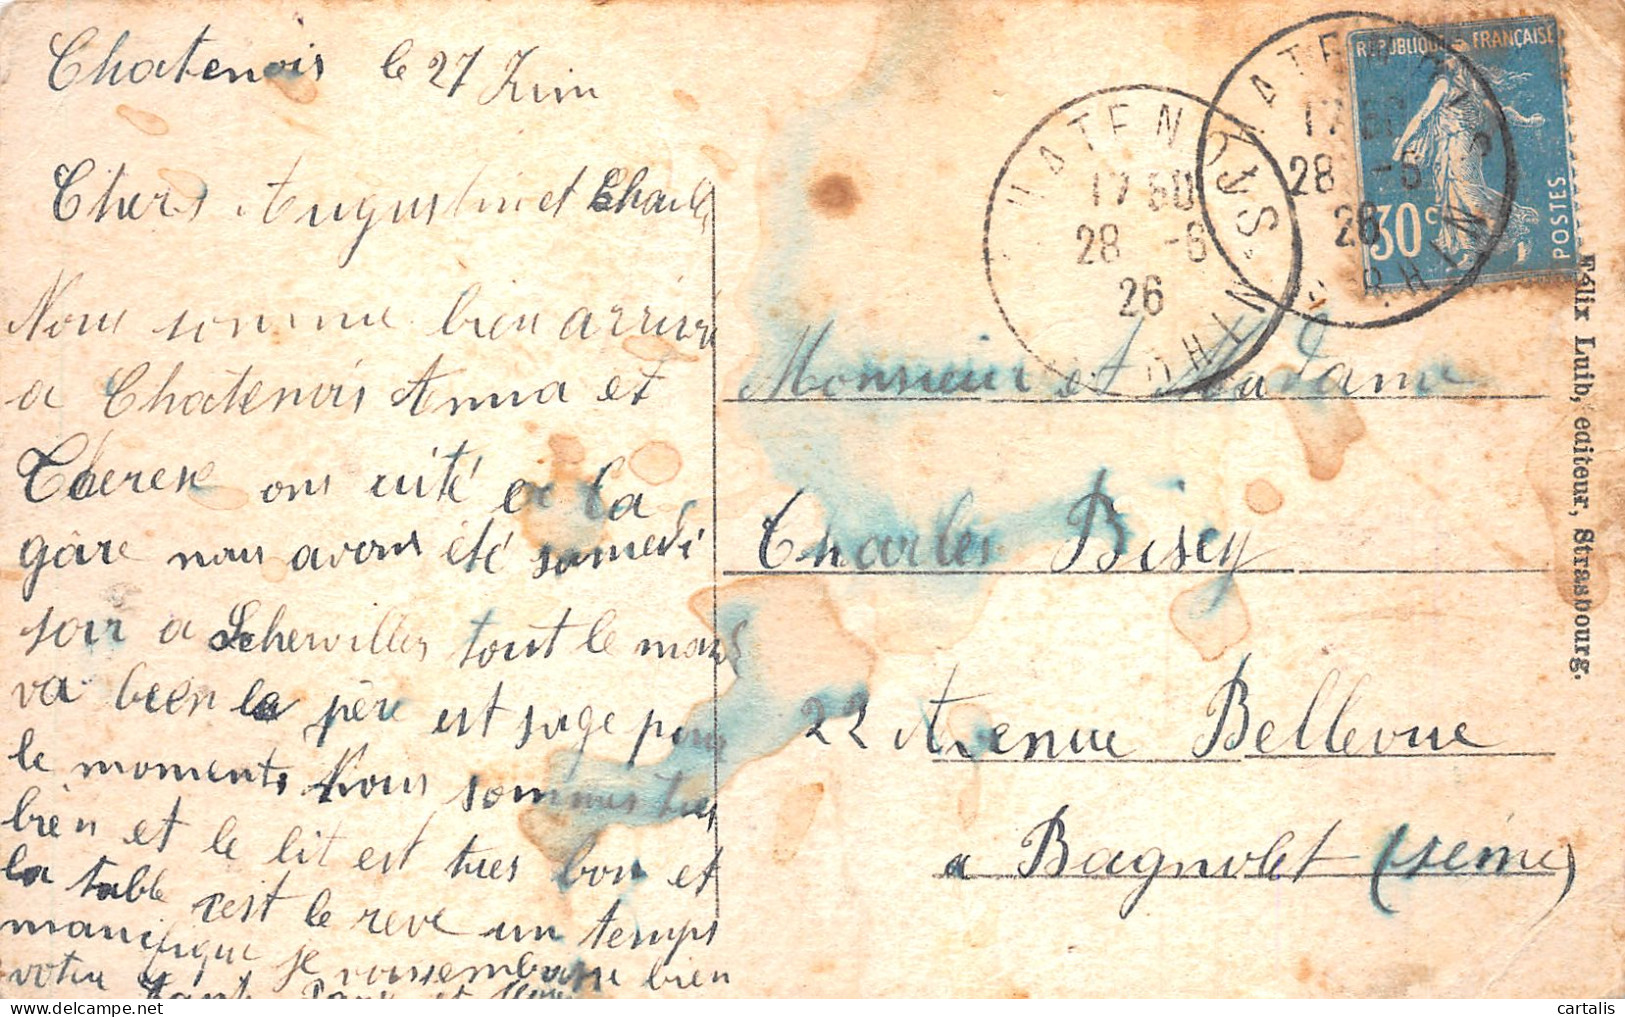 Chatenois le 27 Juin
Chers Augustin et Charles
Nous somme bien arrivé
a Chatenois Anna et
Therese ons etté a la
gâre nous avons été samedi
soir a Scherviller tout le monde
va bien le père est sage pour
le moments Nous sommes tres
bien et le lit est tres bon et
la table cest le reve un temps
manifique je vous embrasse bien
votre tante
Monsieur et Madame
Charles Bisey
22 Avenue Bellevue
a Bagnolet (seine)
CHATENOIS
17 50
28 -6
26
BAS RHIN
CHATENOIS
17 50
28 -6
26
BAS RHIN
REPUBLIQUE FRANÇAISE
30c
POSTES
Félix Luib, editeur, Strasbourg.
cartalis